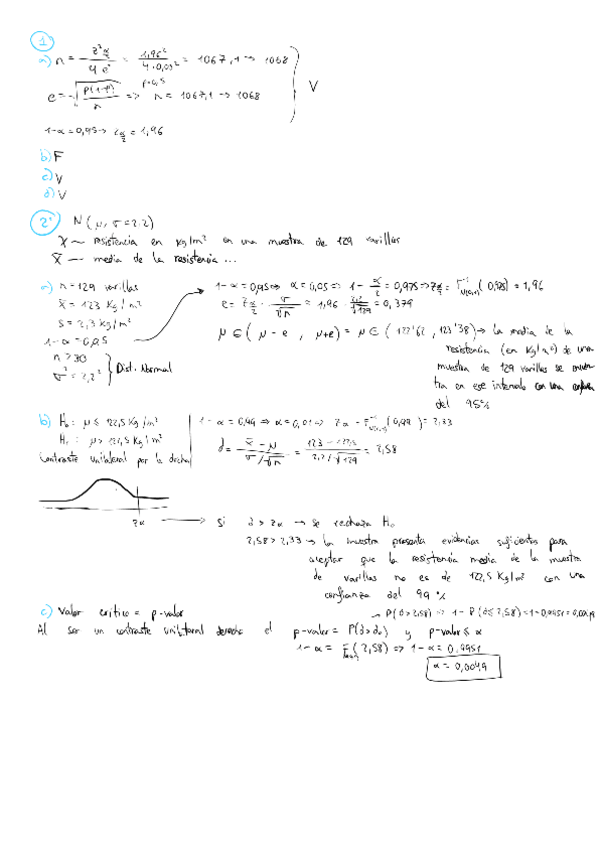 1
a) n = z²α/2 / 4e² = 1,96² / 4·0,03² = 1067,1 → 1068
e = √(P(1-P)/n) ⇒ P=0,5 n = 1067,1 → 1068 V
1-α = 0,95 → zα/2 = 1,96
b) F
c) V
d) V
2 N(μ, σ = 2,2)
X ~ resistencia en kg/m² en una muestra de 129 varillas
x̄ ~ media de la resistencia ...
a) n = 129 varillas
x̄ = 123 kg/m²
s = 2,3 kg/m²
1-α = 0,95
n > 30
σ² = 2,2² } Dist. Normal
1-α = 0,95 ⇒ α = 0,05 ⇒ 1 - α/2 = 0,975 ⇒ zα/2 = F⁻¹N(0,1) (0,975) = 1,96
e = zα/2 · σ/√n = 1,96 · 2,2/√129 = 0,379
μ ∈ (μ - e, μ+e) = μ ∈ (122'62, 123'38) → la media de la
resistencia (en kg/m²) de una
muestra de 129 varillas se
en ese intervalo con una
del 95%
b) H₀: μ ≤ 122,5 kg/m²
H₁: μ > 122,5 kg/m²
Contraste unilateral por la derecha
1-α = 0,99 ⇒ α = 0,01 ⇒ zα = F⁻¹N(0,1) (0,99) = 2,33
d = x̄ - μ / σ/√n = 123 - 122,5 / 2,2/√129 = 2,58
zα → si d > zα → se rechaza H₀
2,58 > 2,33 → la muestra presenta evidencias suficientes para
aceptar que la resistencia media de la muestra
de varillas no es de 122,5 Kg/m² con una
confianza del 99%
c) Valor critico = p-valor
→ P(d > 2,58) ⇒ 1 - P(d ≤ 2,58) = 1 - 0,9951 = 0,0049
Al ser un contraste unilateral derecho el p-valor = P(d > d₀) y p-valor ≤ α
1-α = FN(0,1) (2,58) ⇒ 1-α = 0,9951
α = 0,0049